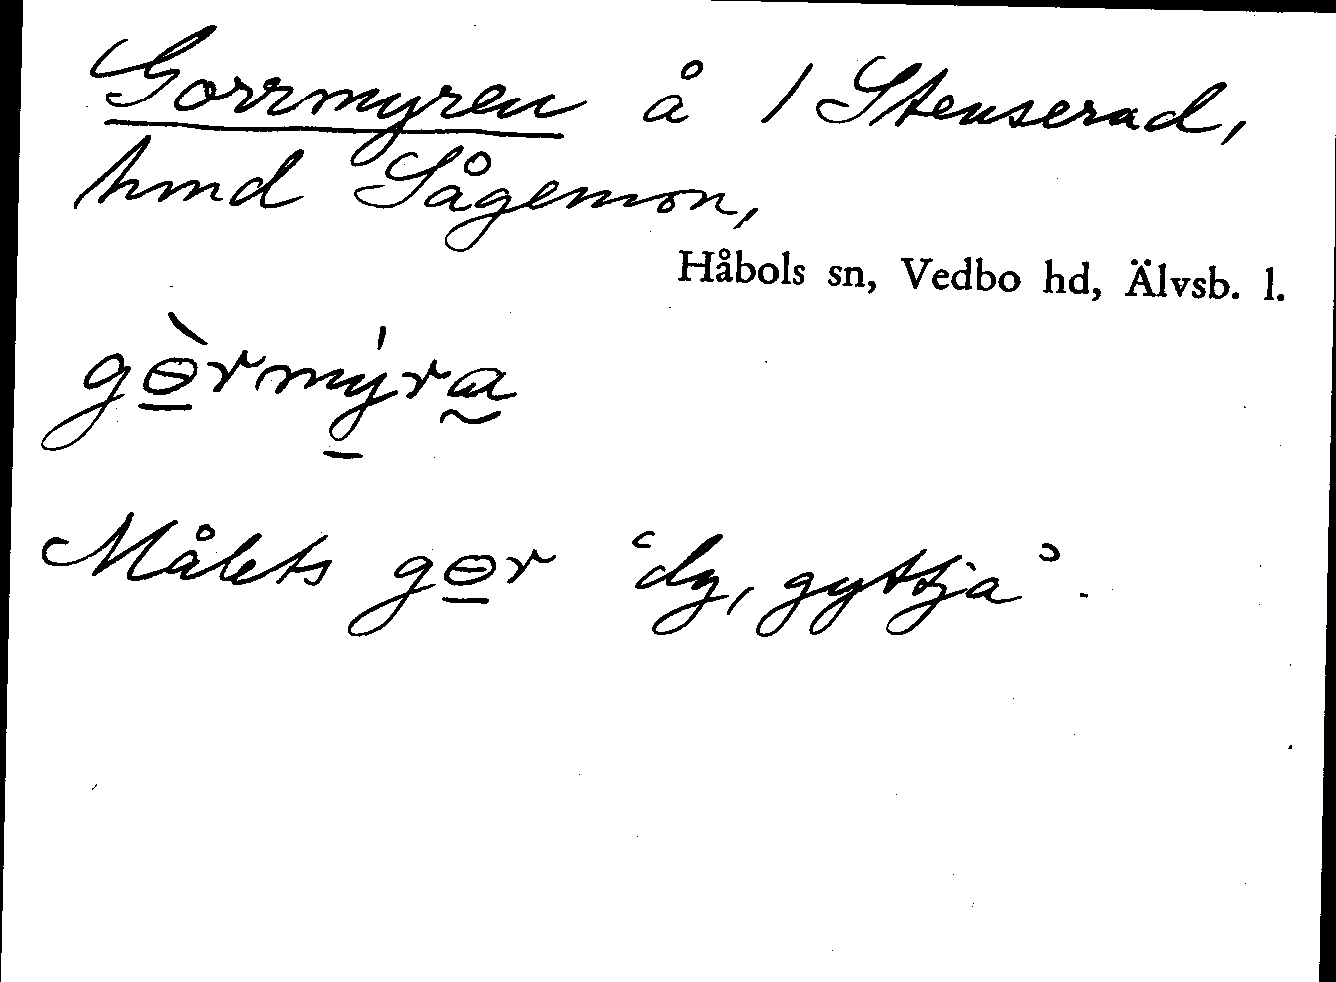 Gorrmyren å 1 Stenserad,
hmd Sågemon,
Håbols sn, Vedbo hd, Älvsb. l.
gɵ̀rmýra
Målets gɵr ‘dy, gyttja’.